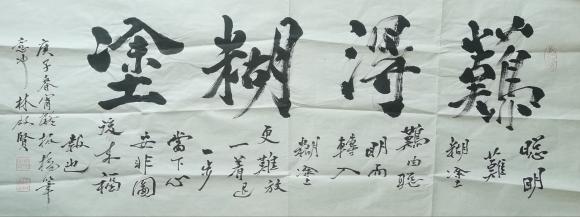 難得糊塗
聰明
難
糊塗
難由聰
明而
轉入
糊塗
更難放
一着退
一步
當下心
安非圖
後來福
報也
庚子春宵板橋筆
意林賢